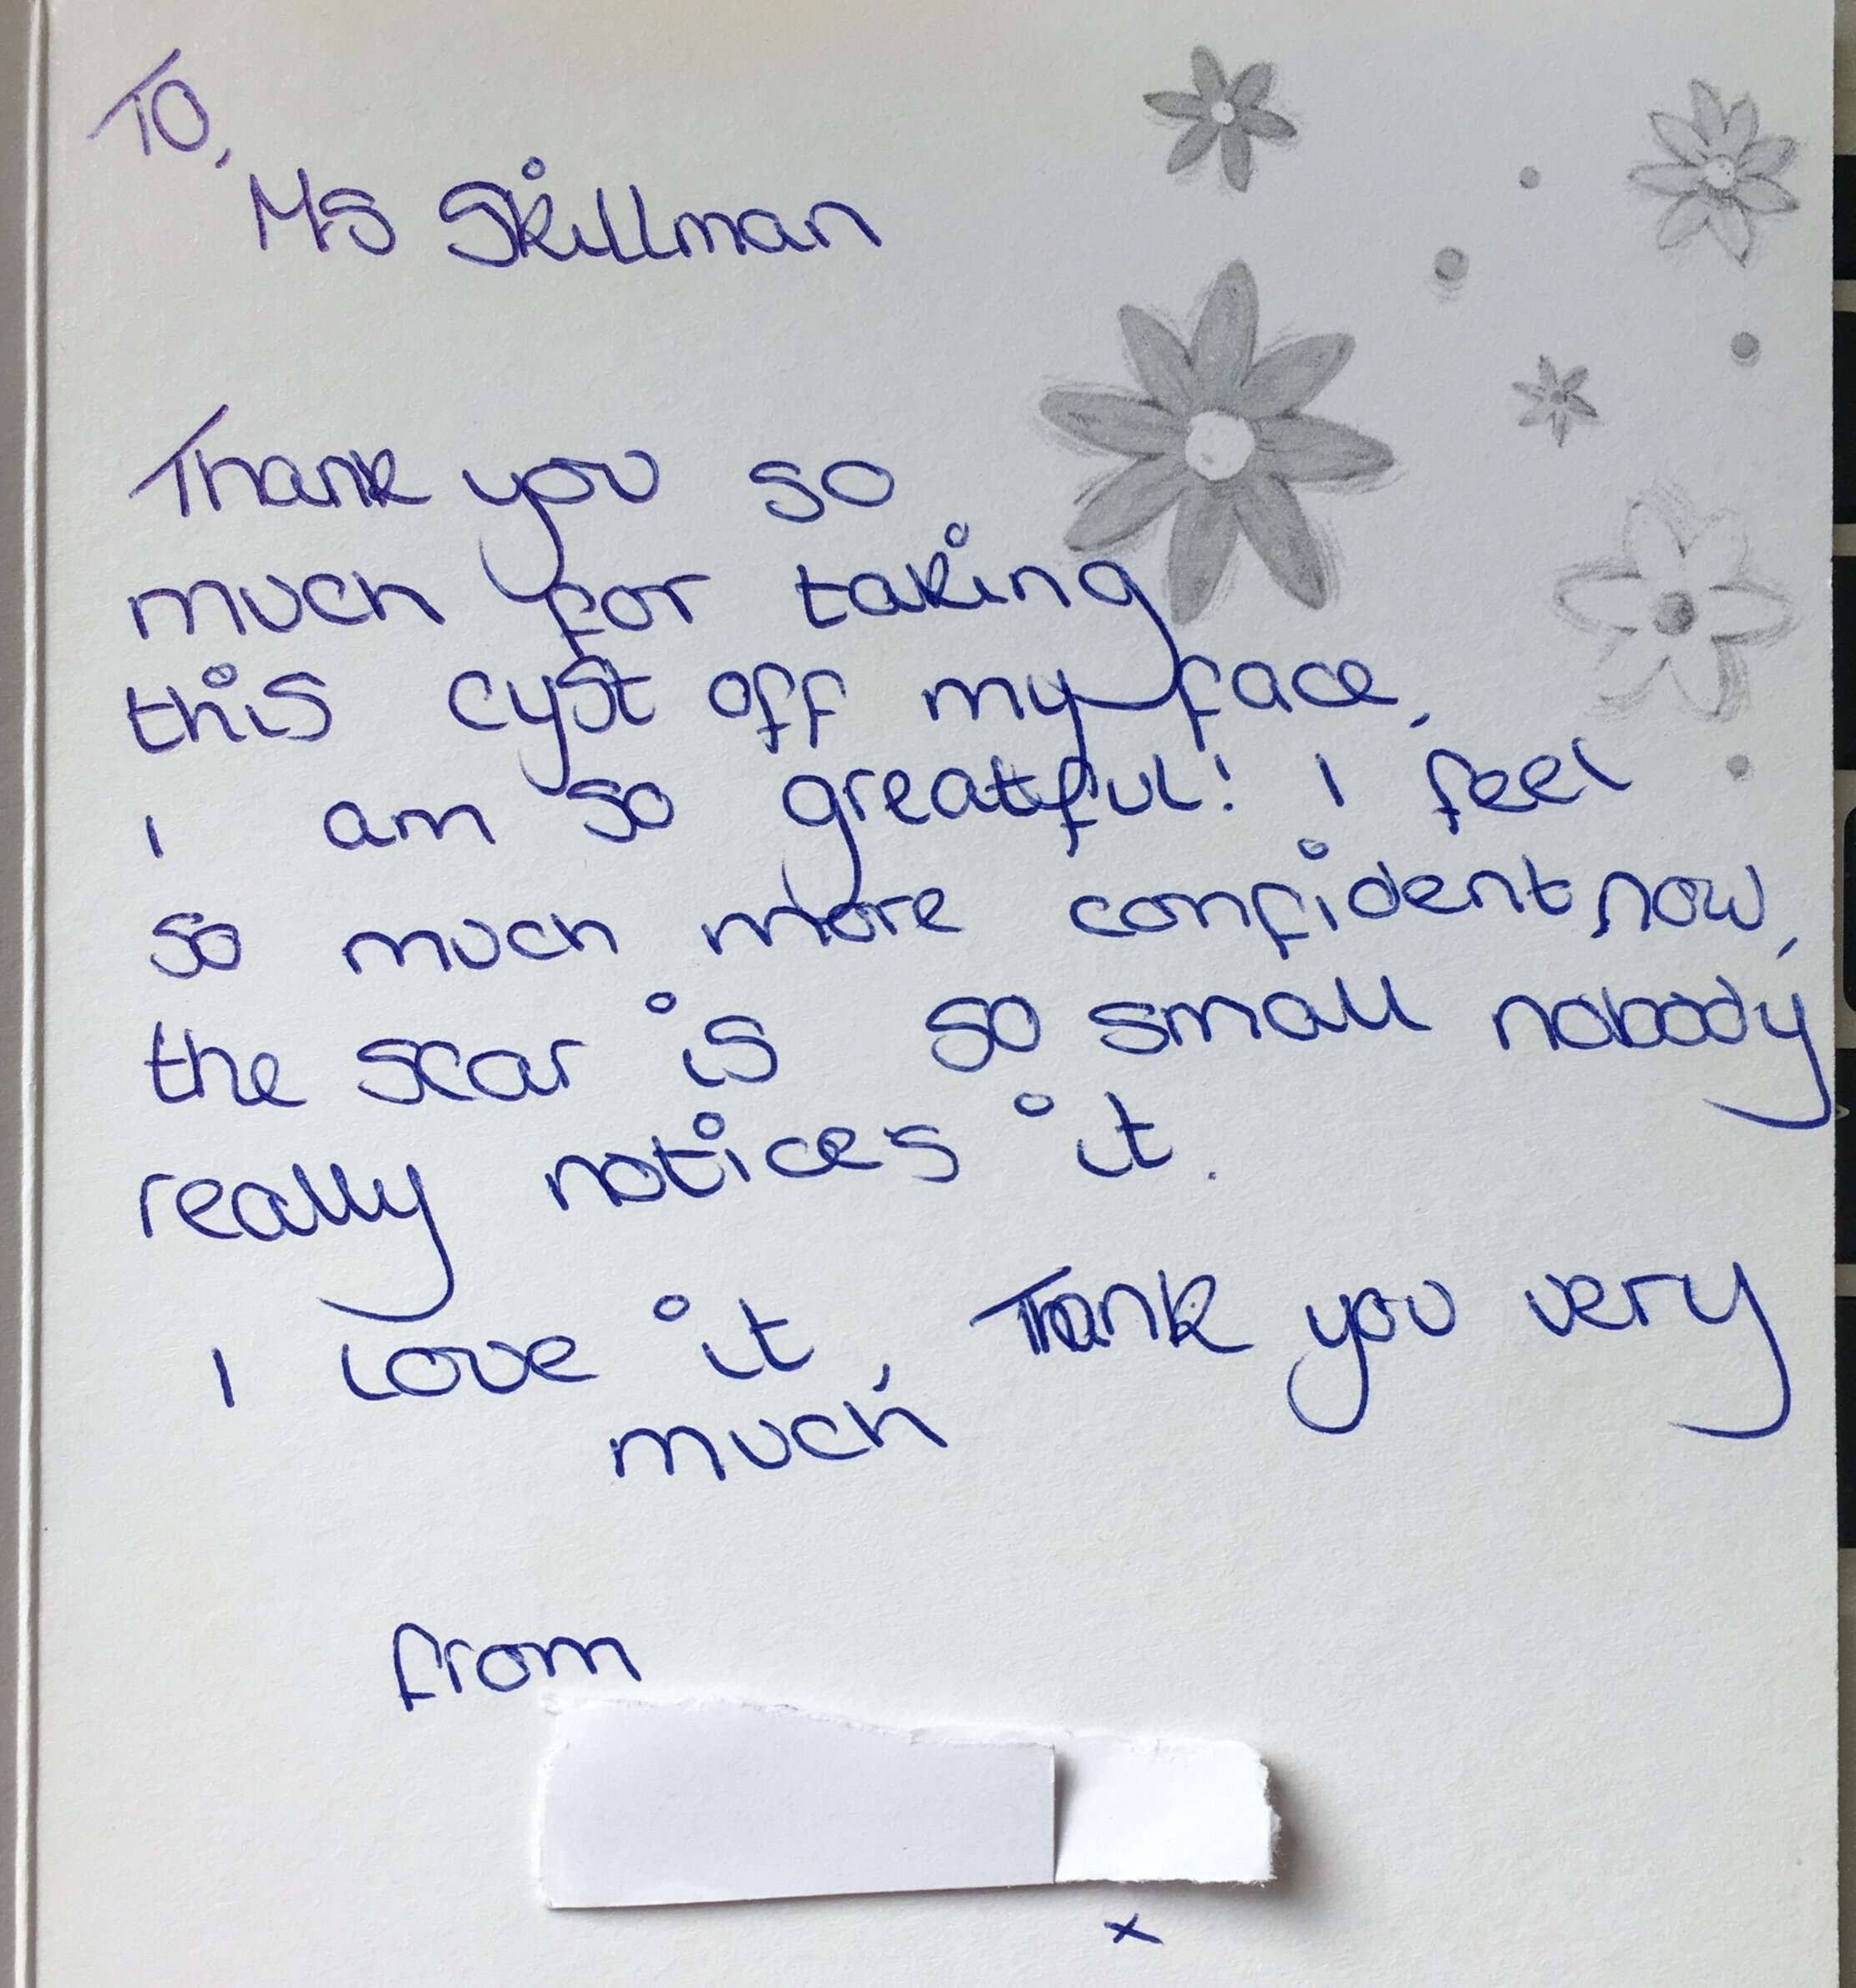 To,
Ms Skillman
Thank you so
much for taking
this cyst off my face,
I am so greatful! I feel
so much more confident now,
the scar is so small nobody
really notices it.
I love it, Thank you very
much
from
x